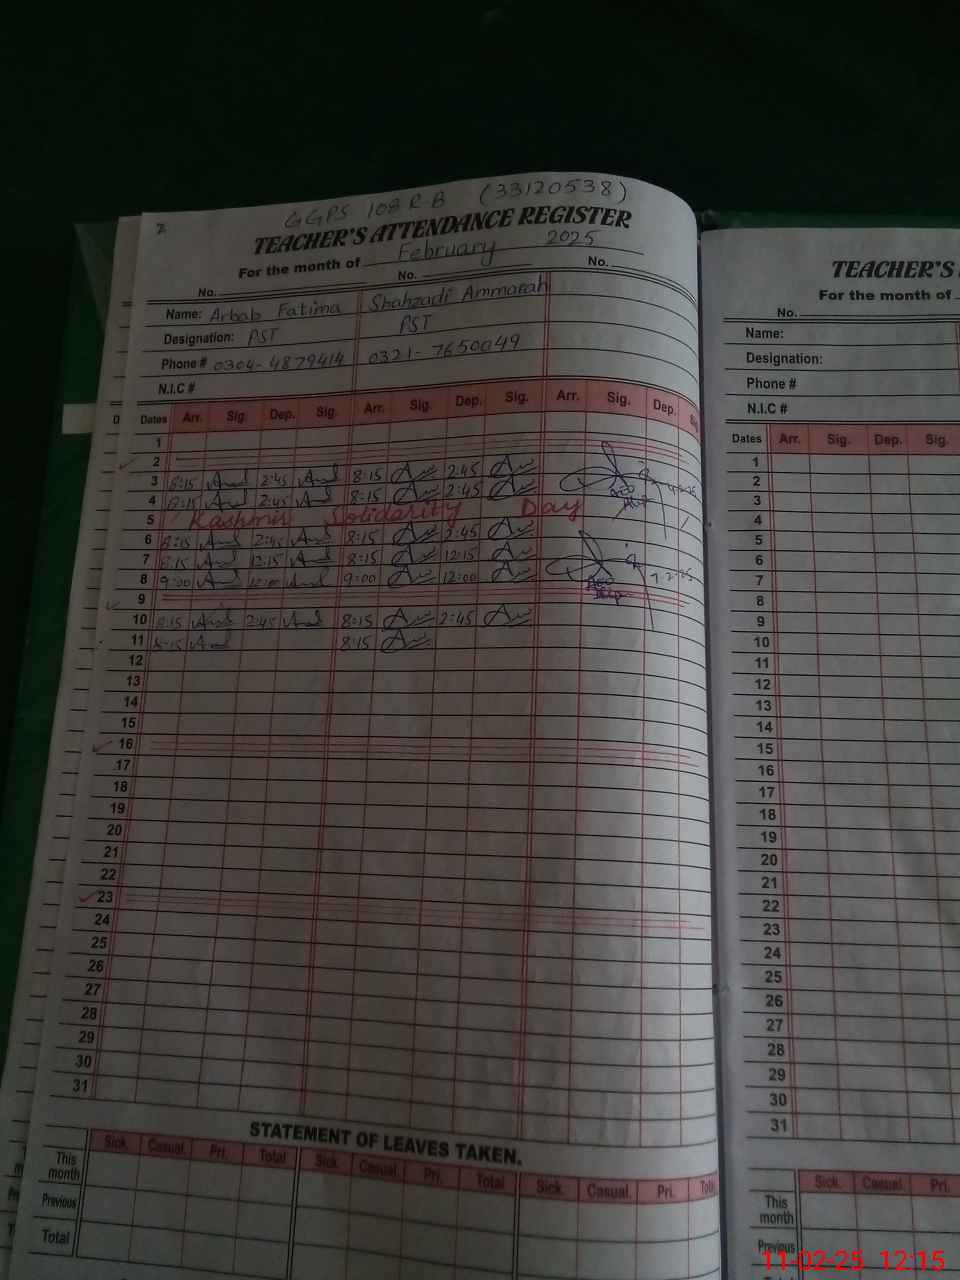 2
GGPS 108 R-B (33120538)
TEACHER'S ATTENDANCE REGISTER
For the month of February 2025
No. No. No.
Name: Arbab Fatima Shahzadi Ammarah
Designation: PST PST
Phone # 0304-4879414 0321-7650049
N.I.C #
Dates Arr. Sig. Dep. Sig. Arr. Sig. Dep. Sig. Arr. Sig. Dep.
1
2
3 8:15 2:45 8:15 2:45
4 8:15 2:45 8:15 2:45
5 Kashmir Solidarity Day
6 8:15 2:45 8:15 2:45
7 8:15 12:15 8:15 12:15
8 9:00 12:00 9:00 12:00 7-2-25
9
10 8:15 2:45 8:15 2:45
11 8:15 8:15
12
13
14
15
16
17
18
19
20
21
22
23
24
25
26
27
28
29
30
31
STATEMENT OF LEAVES TAKEN.
Sick. Casual. Pri. Total Sick. Casual. Pri. Total Sick. Casual. Pri. Total
This month
Previous
Total
TEACHER'S
For the month of
No.
Name:
Designation:
Phone #
N.I.C #
Dates Arr. Sig. Dep. Sig.
1
2
3
4
5
6
7
8
9
10
11
12
13
14
15
16
17
18
19
20
21
22
23
24
25
26
27
28
29
30
31
Sick. Casual. Pri.
This month
Previous
11-02-25 12:15